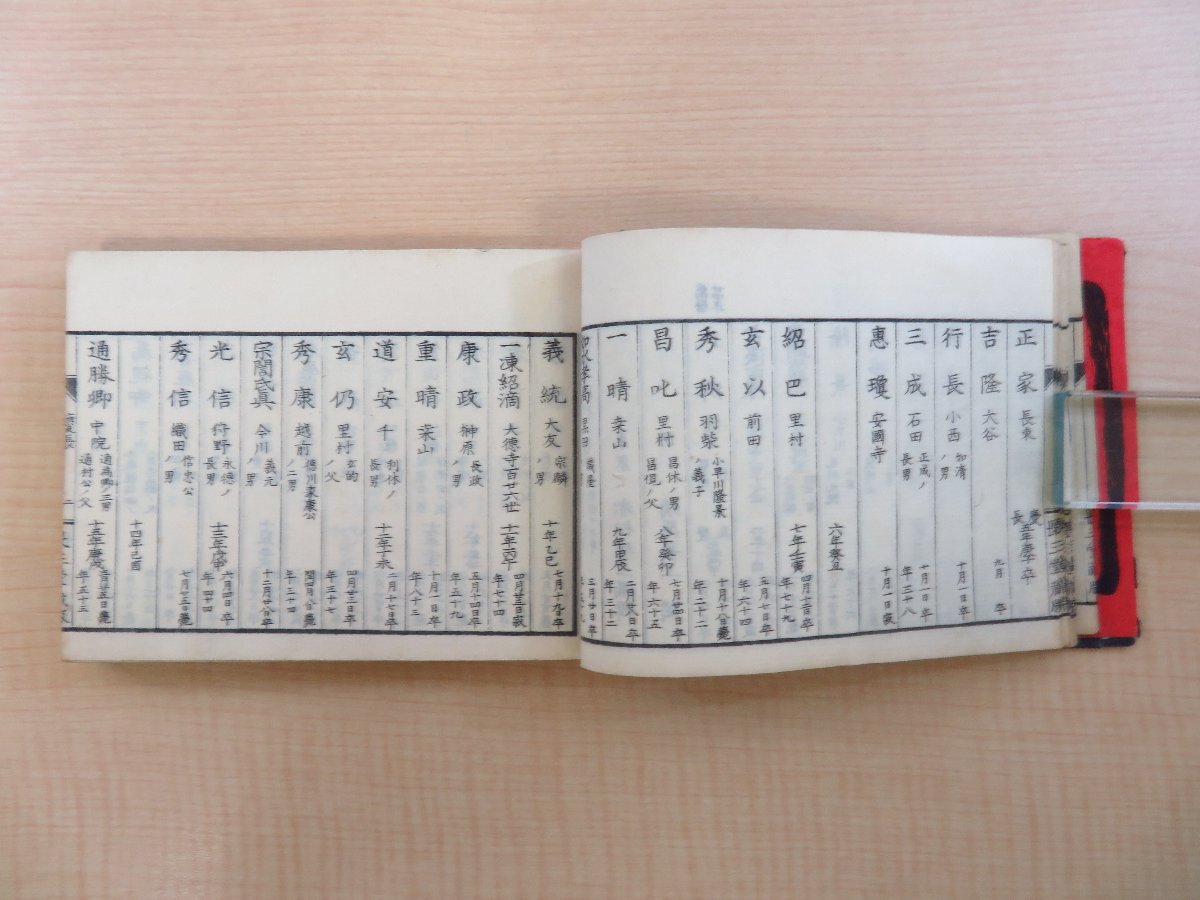 正家 長束 慶長五年庚子 卒
吉隆 大谷 九月 卒
行長 小西 如清 十月一日卒
三成 石田 正成ノ長男 十月一日卒 年三十八
惠瓊 安國寺 十月一日寂
六年辛丑
紹巴 里村 七年壬寅 四月十二日卒 年七十九
玄以 前田 五月七日卒 年六十四
秀秋 羽柴 小早川隆景ノ義子 十月十八日薨 年二十二
昌叱 里村 昌休ノ男 昌俔ノ父 八年癸卯 七月廿四日卒 年六十五
一晴 桒山 九年甲辰 二月廿八日卒 年三十二
如水孝高 黒田 三月廿日卒
義統 大友 宗麟ノ男 十年乙巳 七月十九日卒
一凍紹滴 大徳寺百廿六世 十一年丙午 四月廿三日寂
康政 榊原 長政ノ男 五月十四日卒 年五十九
重晴 桒山 十月一日卒 年八十三
道安 千 利休ノ長男 十二年丁未 二月十七日卒
玄仍 里村 玄的ノ父 四月廿三日卒 年三十七
秀康 越前 徳川家康公ノ二男 閏四月八日薨 年三十四
宗誾氏真 今川 義元ノ男 十二月廿八日卒
光信 狩野 永徳ノ長男 十三年戊申 六月四日卒 年四十四
秀信 織田 信忠公ノ男 七月廿五日薨
十四年己酉
通勝卿 中院 通為卿ノ三男 通村公ノ父 十五年庚戌 三月廿五日薨 年五十三